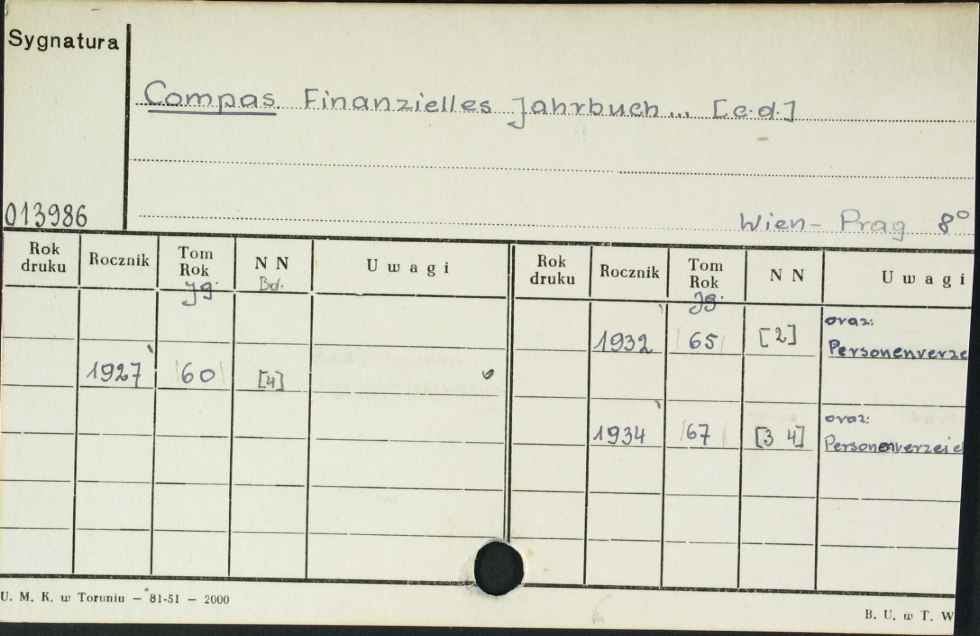 Sygnatura
Compas Finanzielles Jahrbuch... [c.d.]
013986
Wien - Prag 8°
Rok druku Rocznik Tom Rok Jg. N N Bd. U w a g i Rok druku Rocznik Tom Rok Jg. N N U w a g i
1932 65 [2] oraz: Personenverze
1927 60 [4]
1934 67 [3 4] oraz: Personenverzeic
U. M. K. w Toruniu — 81-51 — 2000
B. U. w T. W